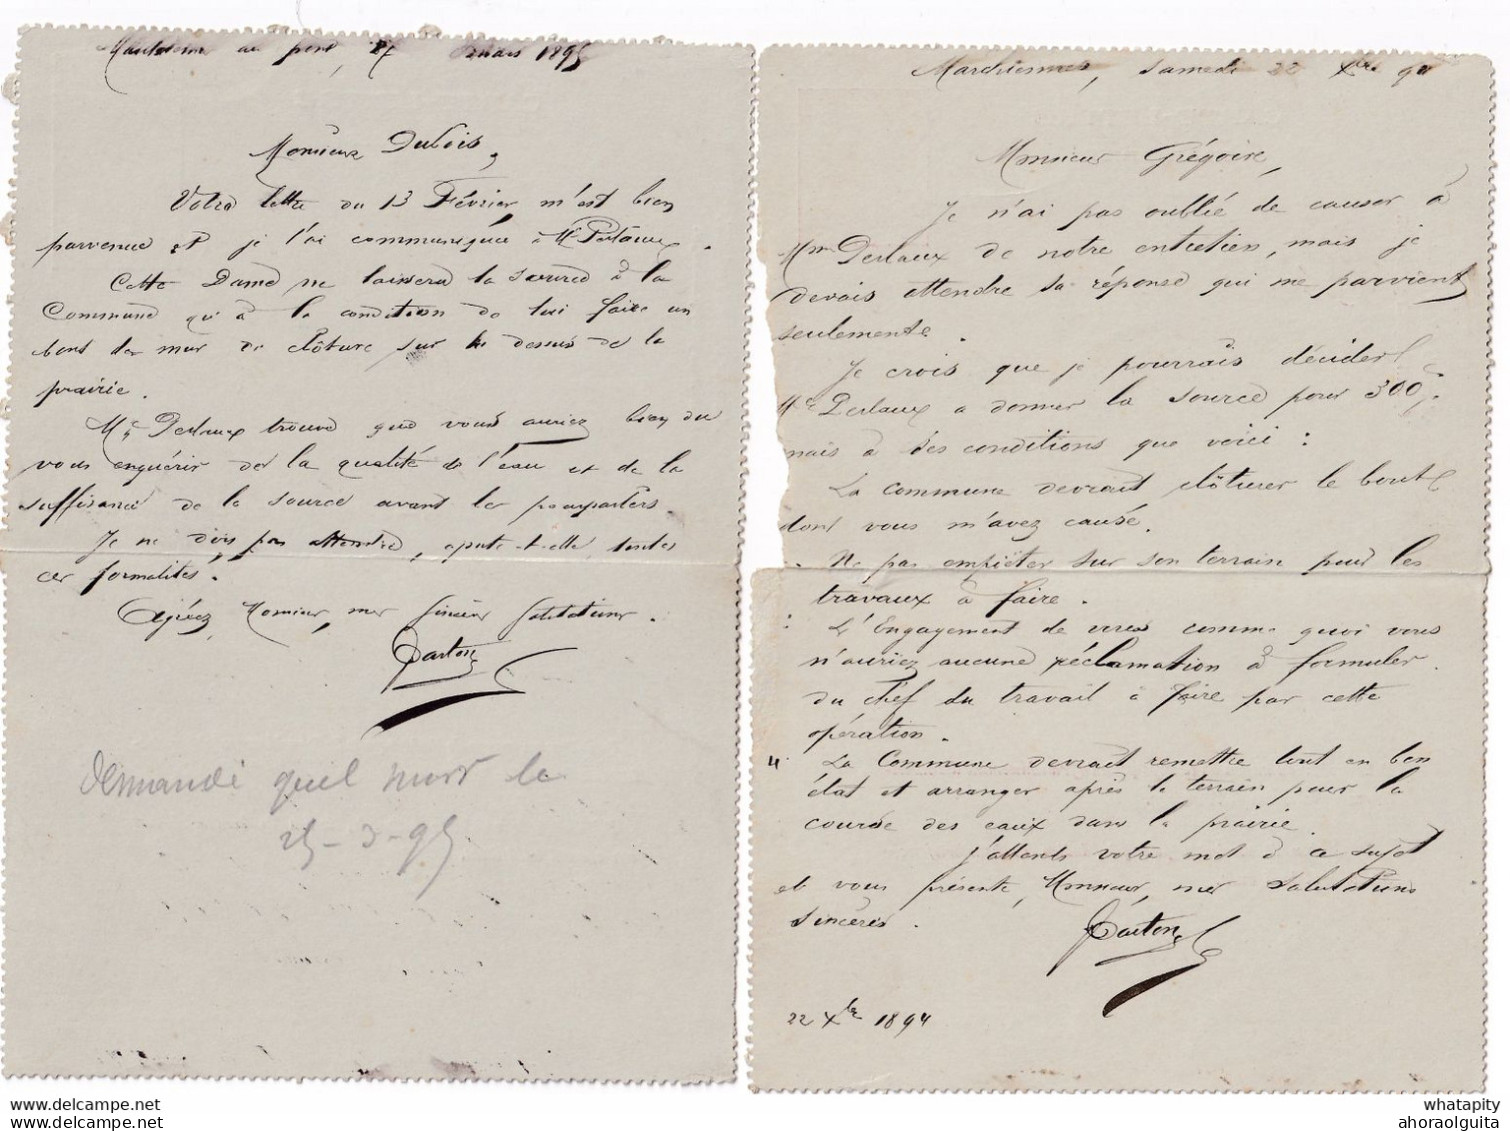 au pont, 27 mars 1895
Monsieur Dubois,
Votre lettre du 13 Février m'est bien
parvenue et je l'ai communiquée à Me Perlaux.
Cette Dame ne laissera la source à la
Commune qu'à la condition de lui faire un
bout de mur de clôture sur le dessus de la
prairie.
Me Perlaux trouve que vous auriez bien du
vous enquérir de la qualité de l'eau et de la
suffisance de la source avant les pourparlers.
Je ne dois pas attendre, ajoute-t-elle, toutes
ces formalités.
Agréez, Monsieur, mes sincères salutations.
demandé quel mur la
25-3-95
Marchiennes, Samedi 22 Xbre 94
Monsieur Grégoire,
Je n'ai pas oublié de causer à
Mme Perlaux de notre entretien, mais je
devais attendre sa réponse qui me parvient
seulement.
Je crois que je pourrais décider
Me Perlaux a donner la source pour 300f.
mais à des conditions que voici :
La commune devrait clôturer le bout
dont vous m'avez causé.
Ne pas empiéter sur son terrain pour les
travaux à faire.
L'Engagement de vous comme quoi vous
n'auriez aucune réclamation à formuler
du chef du travail à faire par cette
opération.
4 La Commune devrait remettre tout en bon
état et arranger après le terrain pour la
course des eaux dans la prairie.
J'attends votre mot à ce sujet
et vous présente, Monsieur, mes salutations
sincères.
22 Xbre 1894
whatapity
ahoraolguita